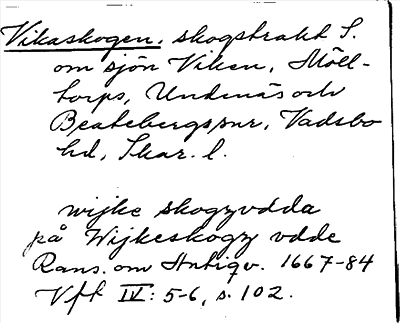 Vikaskogen, skogstrakt S.
om sjön Viken, Möll-
torps, Undenäs och
Beatebergs snr, Vadsbo
hd, Skar. l.
wijke skogzvdda
på Wijkeskogz vdde
Rans. om Antiqv. 1667-84
Vff IV: 5-6, s. 102.